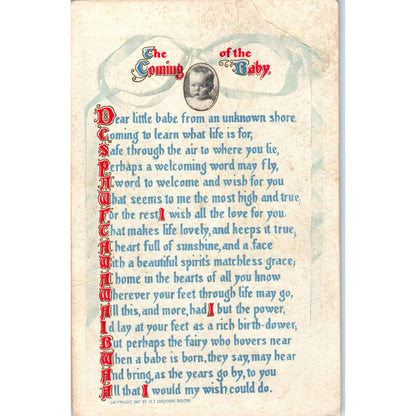 The Coming of the Baby.
Dear little babe from an unknown shore
Coming to learn what life is for,
Safe through the air to where you lie,
Perhaps a welcoming word may fly,
A word to welcome and wish for you
What seems to me the most high and true,
For the rest I wish all the love for you
That makes life lovely, and keeps it true;
A heart full of sunshine, and a face
With a beautiful spirit's matchless grace;
A home in the hearts of all you know
Wherever your feet through life may go,
All this, and more, had I but the power,
I'd lay at your feet as a rich birth-dower,
But perhaps the fairy who hovers near
When a babe is born, they say, may hear
And bring, as the years go by, to you
All that I would my wish could do.
COPYRIGHT, BY M.T. SHEAHAN, BOSTON